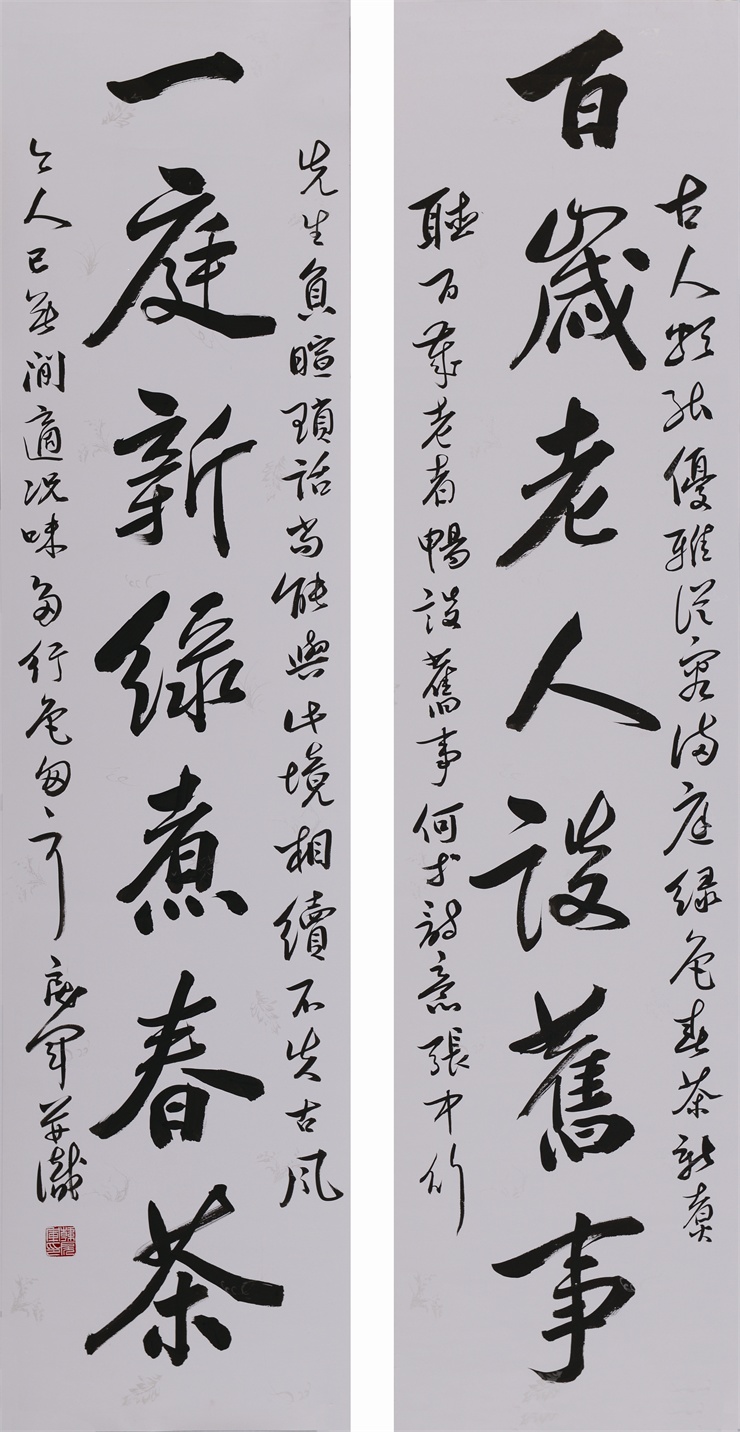 百歲老人談舊事
古人頗能優雅從容滿庭綠色春茶新煮
聽百歲老者暢談舊事何等詩意張中行
一庭新綠煮春茶
先生負暄瑣話尚能與此境相續不失古風
今人已無閒適況味多行色匆匆 軍并識